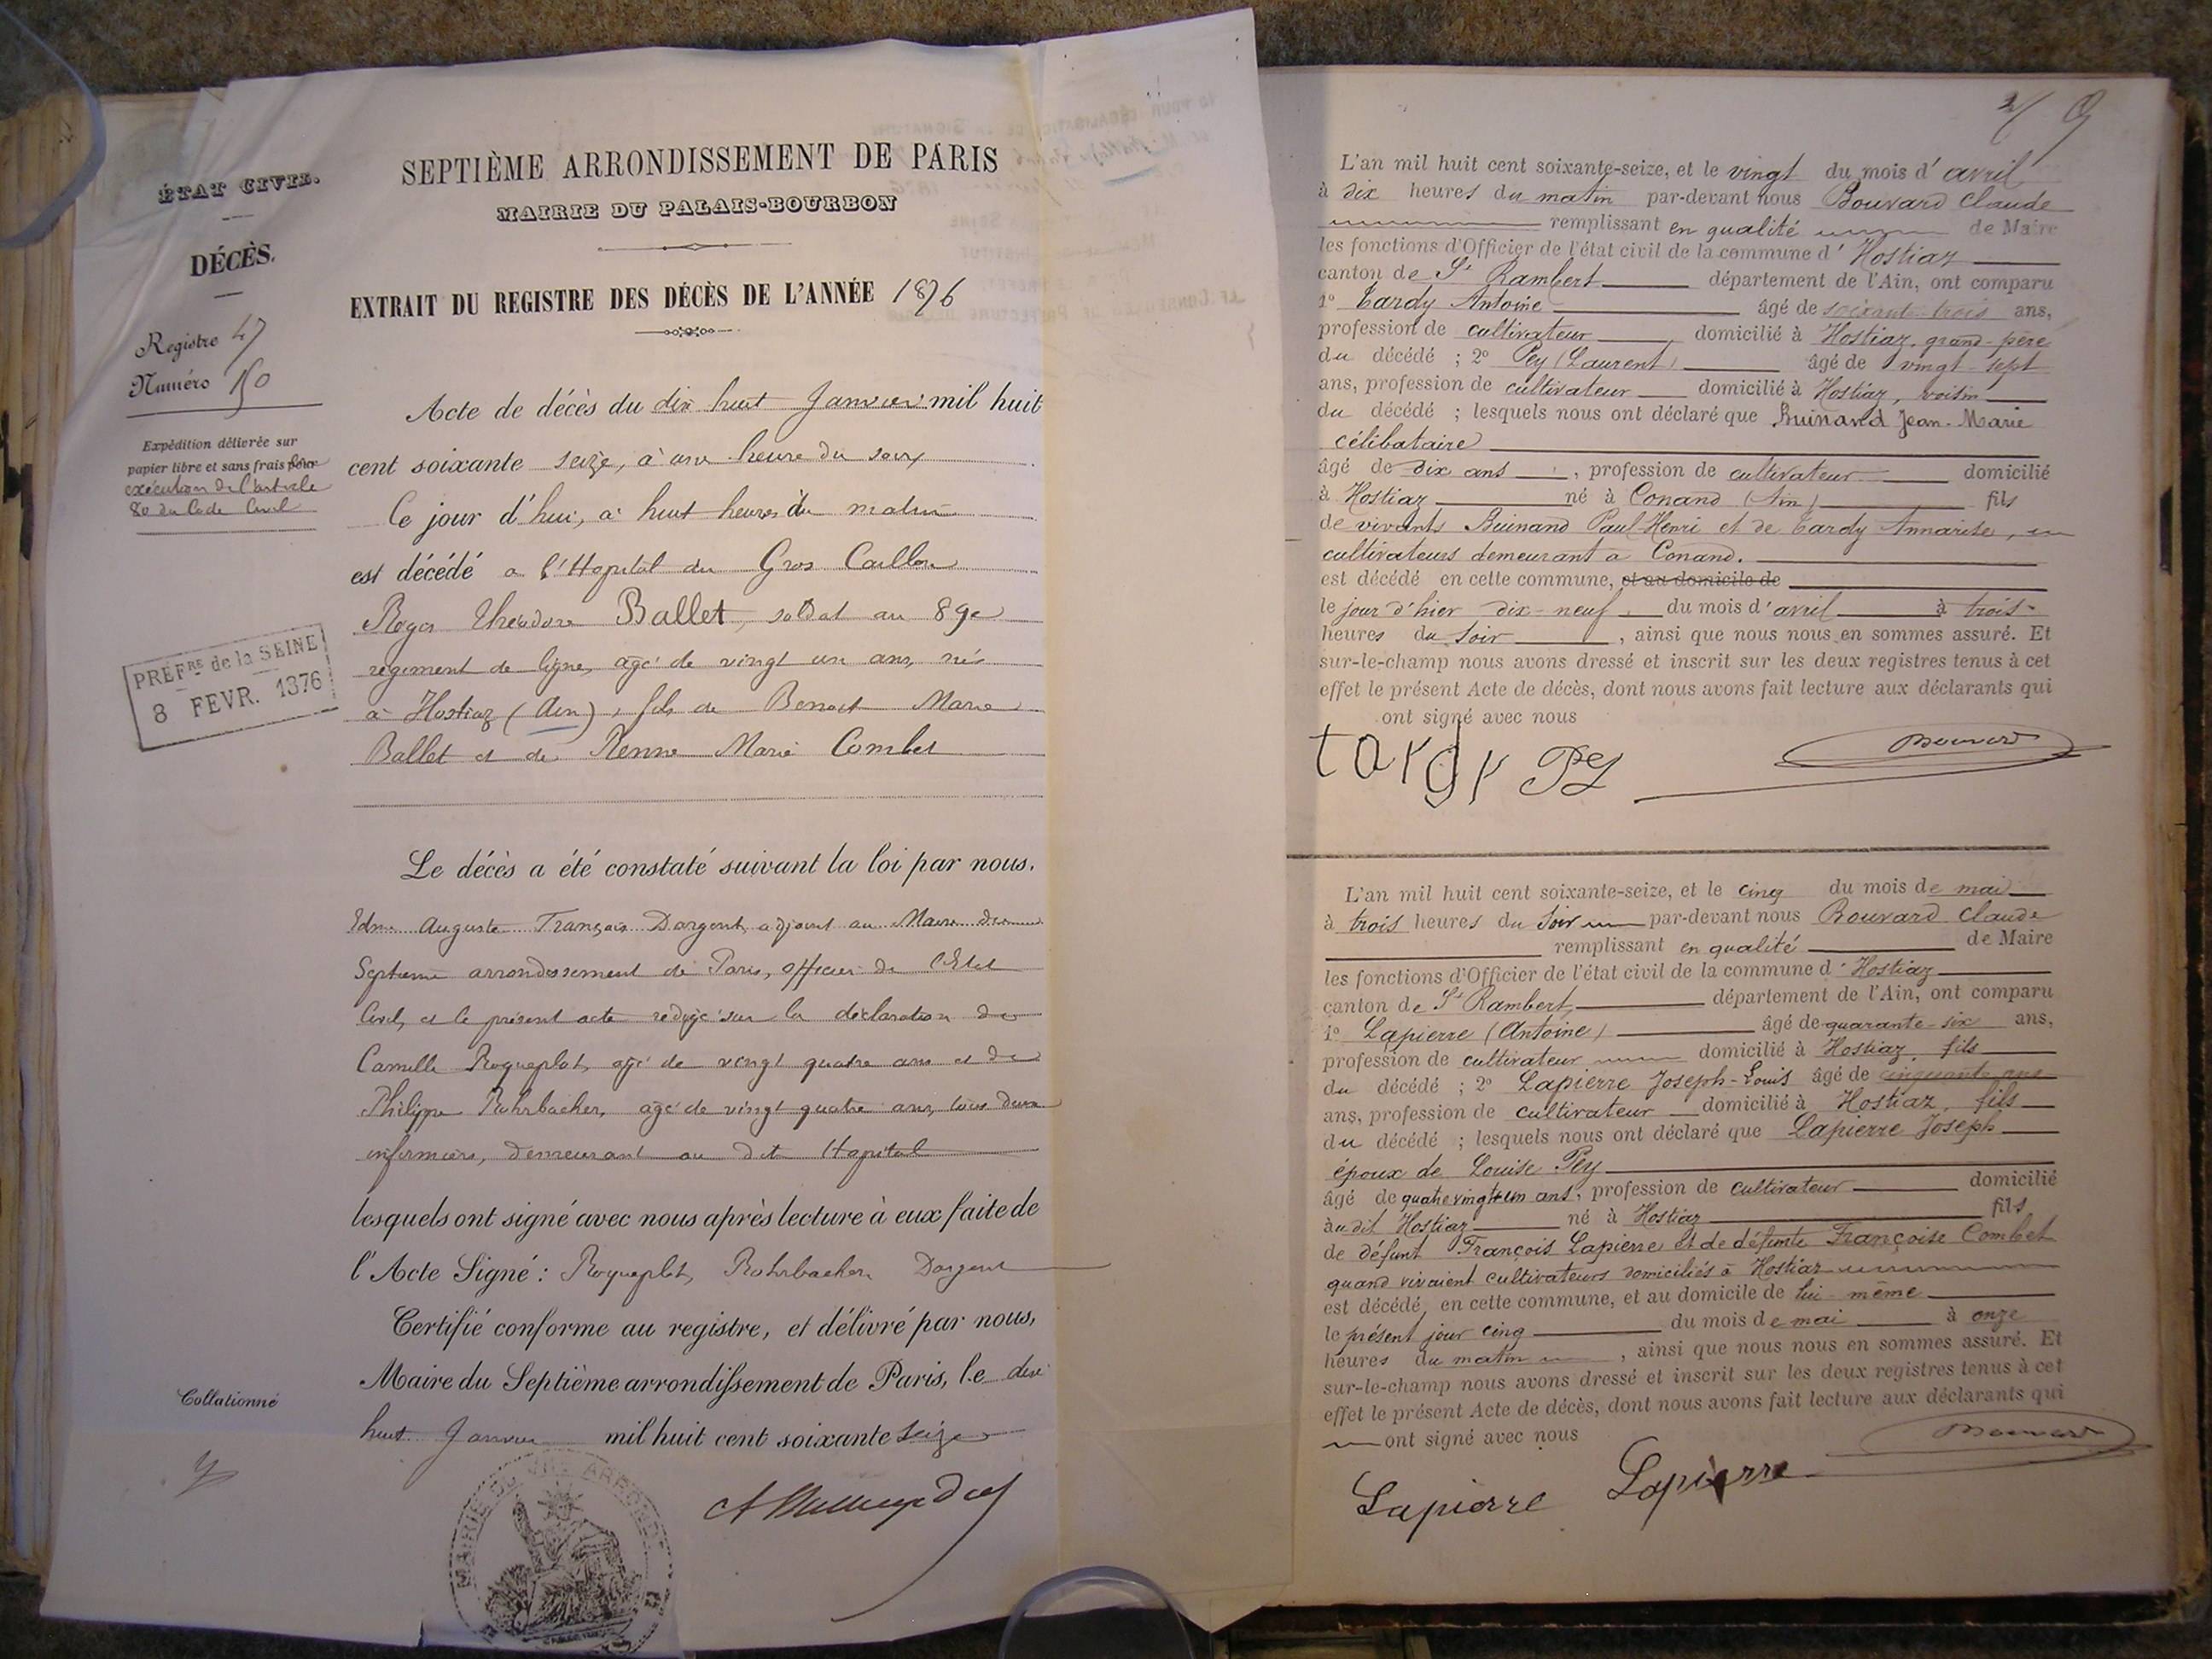 ÉTAT CIVIL.
DÉCÈS.
Registre 47
Numéro 150
Expédition délivrée sur
papier libre et sans frais pour
exécution de l'article
80 du Code Civil
PRÉFRE de la SEINE
8 FEVR. 1876
Collationné
SEPTIÈME ARRONDISSEMENT DE PARIS
MAIRIE DU PALAIS-BOURBON
EXTRAIT DU REGISTRE DES DÉCÈS DE L'ANNÉE 1876
Acte de décès du dix huit Janvier mil huit
cent soixante seize, à une heure du soir
Ce jour d'hui, à huit heures du matin
est décédé a l'Hopital du Gros Caillou
Roger Théodore Ballet, soldat au 89e
régiment de ligne, agé de vingt un ans, né
à Hostiaz (Ain), fils de Benoit Marie
Ballet et de Marie Combet
Le décès a été constaté suivant la loi par nous,
Edme Auguste François Dargent, adjoint au Maire du
Septieme arrondissement de Paris, officier de l'Etat
Civil, et le présent acte rédigé sur la déclaration de
Camille Roqueplot, agé de vingt quatre ans et de
Philippe Rohrbacher, agé de vingt quatre ans, tous deux
infirmiers, demeurant au dit Hopital
lesquels ont signé avec nous après lecture à eux faite de
l'Acte Signé : Roqueplot, Rohrbacher, Dargent
Certifié conforme au registre, et délivré par nous,
Maire du Septième arrondissement de Paris, le dix
huit Janvier mil huit cent soixante seize
MAIRIE DU VIIE ARRONDT
L'an mil huit cent soixante-seize, et le vingt du mois d'avril
à dix heures du matin par-devant nous Bouvard Claude
remplissant en qualité de Maire
les fonctions d'Officier de l'état civil de la commune d'Hostiaz
canton de St Rambert département de l'Ain, ont comparu
1º Tardy Antoine âgé de soixante-trois ans,
profession de cultivateur domicilié à Hostiaz, grand-père
du décédé ; 2º Pey (Laurent) âgé de vingt-sept
ans, profession de cultivateur domicilié à Hostiaz, voisin
du décédé ; lesquels nous ont déclaré que Buinand Jean-Marie
célibataire
âgé de dix ans, profession de cultivateur domicilié
à Hostiaz né à Conand (Ain) fils
de vivants Buinand Paul Henri et de Tardy Annarise,
cultivateurs demeurant a Conand.
est décédé en cette commune, et au domicile de
le jour d'hier dix-neuf du mois d'avril à trois
heures du soir, ainsi que nous nous en sommes assuré. Et
sur-le-champ nous avons dressé et inscrit sur les deux registres tenus à cet
effet le présent Acte de décès, dont nous avons fait lecture aux déclarants qui
ont signé avec nous
tardy Pey Bouvard
L'an mil huit cent soixante-seize, et le cinq du mois de mai
à trois heures du soir par-devant nous Bouvard Claude
remplissant en qualité de Maire
les fonctions d'Officier de l'état civil de la commune d'Hostiaz
canton de St Rambert, département de l'Ain, ont comparu
1º Lapierre (Antoine) âgé de quarante-six ans,
profession de cultivateur domicilié à Hostiaz, fils
du décédé ; 2º Lapierre Joseph-Louis âgé de cinquante ans
ans, profession de cultivateur domicilié à Hostiaz, fils
du décédé ; lesquels nous ont déclaré que Lapierre Joseph
époux de Louise Pey
âgé de quatre vingt un ans, profession de cultivateur domicilié
audit Hostiaz né à Hostiaz fils
de défunt François Lapierre et de défunte Françoise Combet
quand vivaient cultivateurs domiciliés à Hostiaz
est décédé, en cette commune, et au domicile de lui-même
le présent jour cinq du mois de mai à onze
heures du matin, ainsi que nous nous en sommes assuré. Et
sur-le-champ nous avons dressé et inscrit sur les deux registres tenus à cet
effet le présent Acte de décès, dont nous avons fait lecture aux déclarants qui
ont signé avec nous
Lapierre Lapierre Bouvard